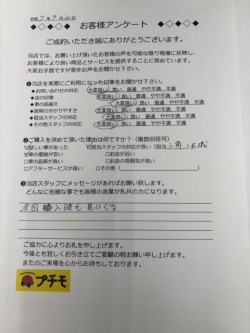 ◆◇◆◇ お客様アンケート ◆◇◆◇
ご成約いただき誠にありがとうございます。
当店では、お買い上げ頂いたお客様の声を可能な限り現場に反映し、
お客様により良い商品とサービスを提供することに努めています。
大変お手数ですが是非お声をお聞かせ下さい。
❶当店を実際にご利用になった印象等をお聞かせ下さい。
●お問い合わせの対応 大変良い 良い 普通 やや不満 不満
●店の印象 大変良い 良い 普通 やや不満 不満
●車の品揃え 大変良い 良い 普通 やや不満 不満
●説明の分かりやすさ 大変良い 良い 普通 やや不満 不満
●担当スタッフの対応 大変良い 良い 普通 やや不満 不満
●その他スタッフの対応 大変良い 良い 普通 やや不満 不満
❷ご購入を決めて頂いた理由は何ですか？（複数回答可）
欲しい車があった □担当スタッフの対応
□車の価格が安い □お店が近い
□車の質が良い □お店の雰囲気が良い
□アフターサービスが良い □その他
❸当店スタッフにメッセージがあればお願い致します。
どんなに些細な事でも皆様の言葉が私共の力になります。
次回購入時も見にくる
ご協力に心よりお礼を申し上げます。
今後とも宜しくお引き立てご愛顧の程お願い申し上げます。
またのご来場を心からお待ちしております。
プチモ